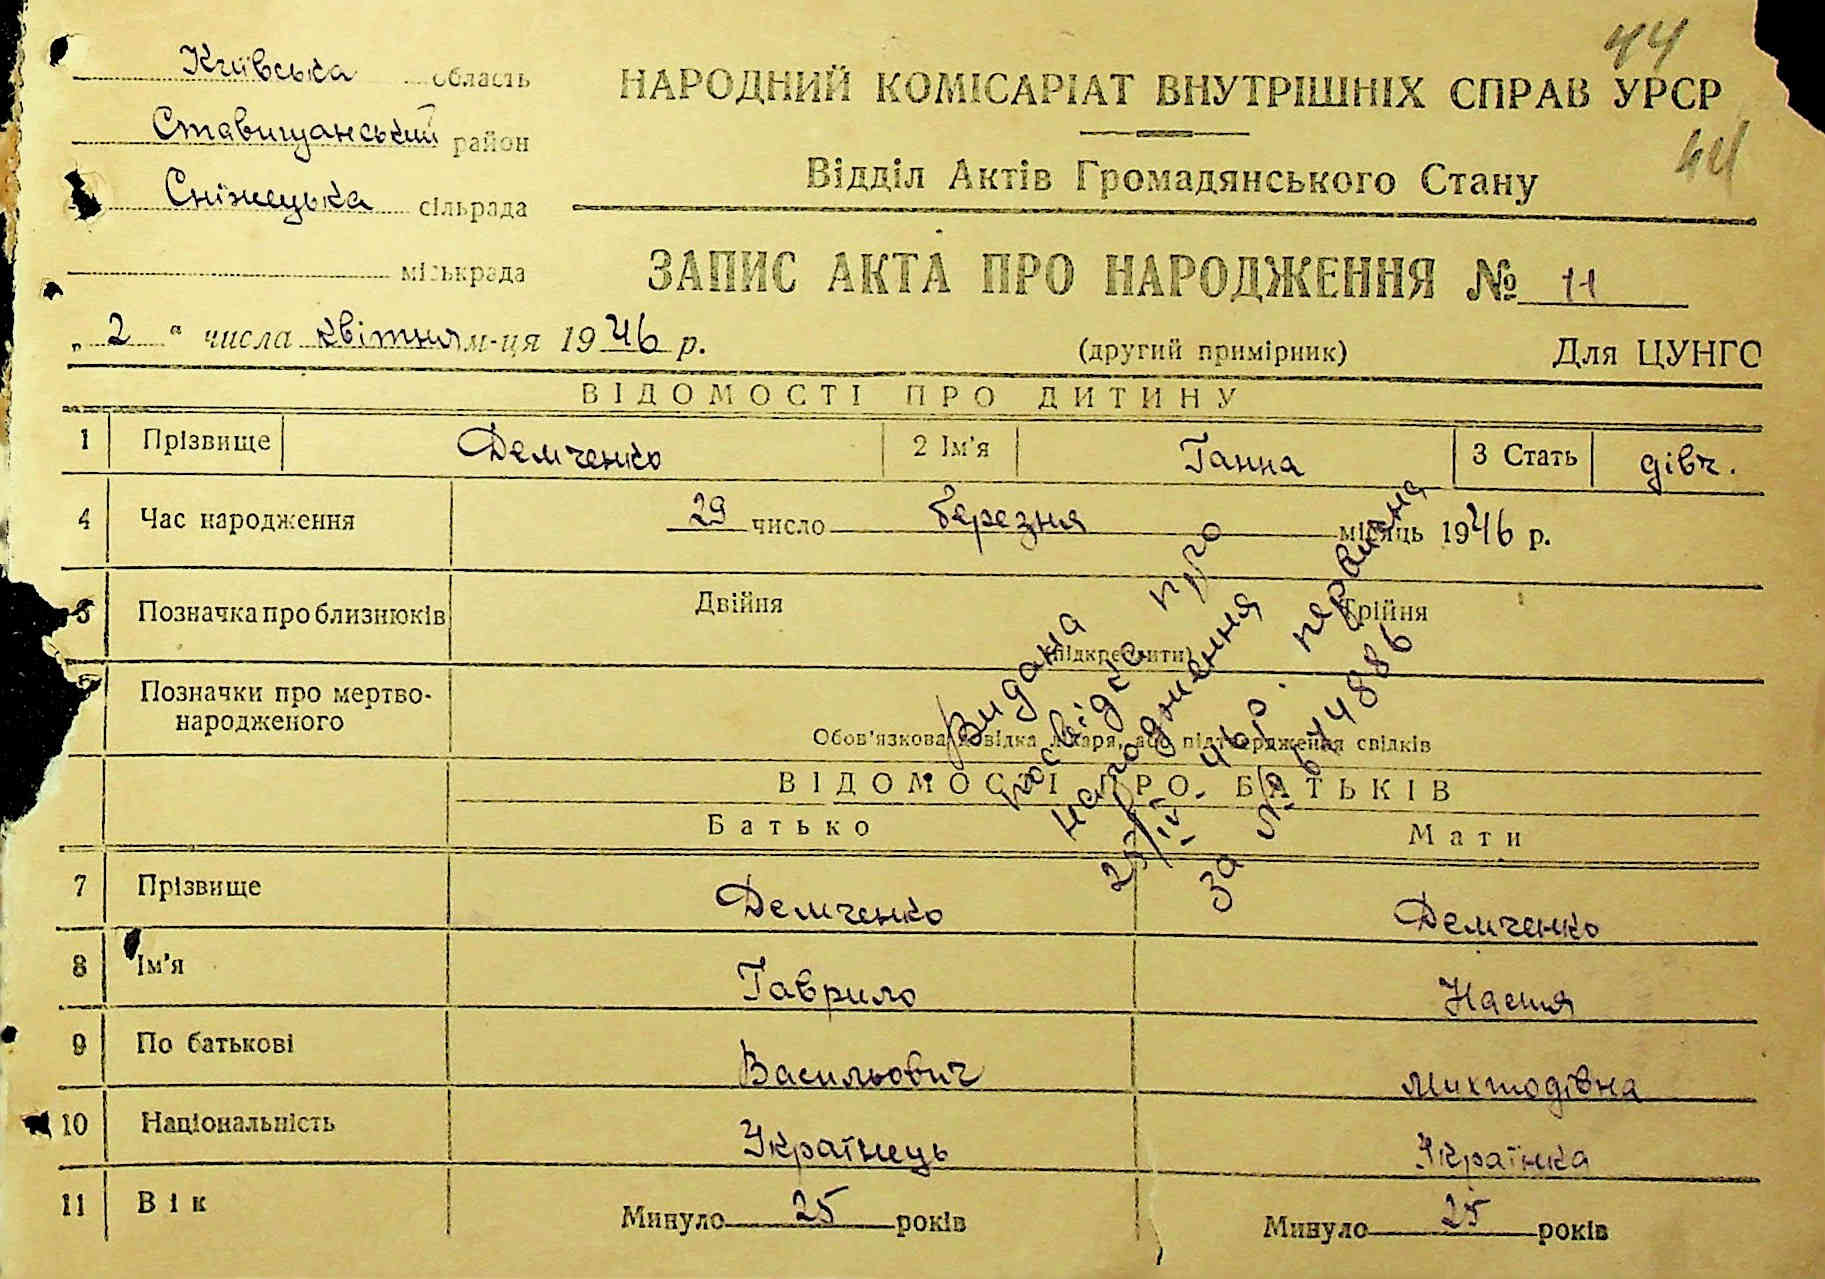 44
Київська область
НАРОДНИЙ КОМІСАРІАТ ВНУТРІШНІХ СПРАВ УРСР
Ставищанський район
44
Відділ Актів Громадянського Стану
Сніжецька сільрада
міськрада
ЗАПИС АКТА ПРО НАРОДЖЕННЯ № 11
„ 2 " числа квітня м-ця 1946 р.
(другий примірник) Для ЦУНГО
ВІДОМОСТІ ПРО ДИТИНУ
1 Прізвище Демченко 2 Ім'я Ганна 3 Стать дівч.
4 Час народження 29 число березня місяць 1946 р.
5 Позначка про близнюків Двійня Трійня
(підкреслити)
Позначки про мертво-
народженого
Обов'язкова довідка лікаря, або підтвердження свідків
Видана посвідка про
народження
25/IV-46р. первинна
за № 644886
ВІДОМОСТІ ПРО БАТЬКІВ
Батько Мати
7 Прізвище Демченко Демченко
8 Ім'я Гаврило Настя
9 По батькові Васильович
10 Національність Українець Українка
11 Вік Минуло 25 років Минуло 25 років